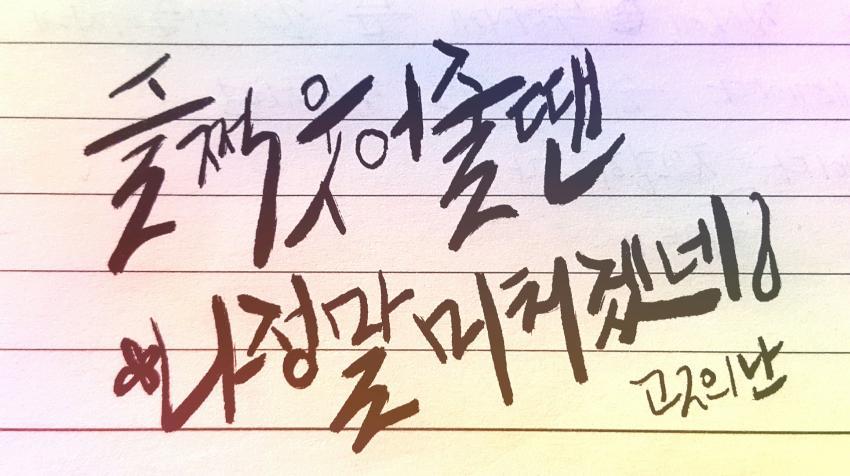 슬쩍 웃어줄 땐
나 정말 미치겠네
난